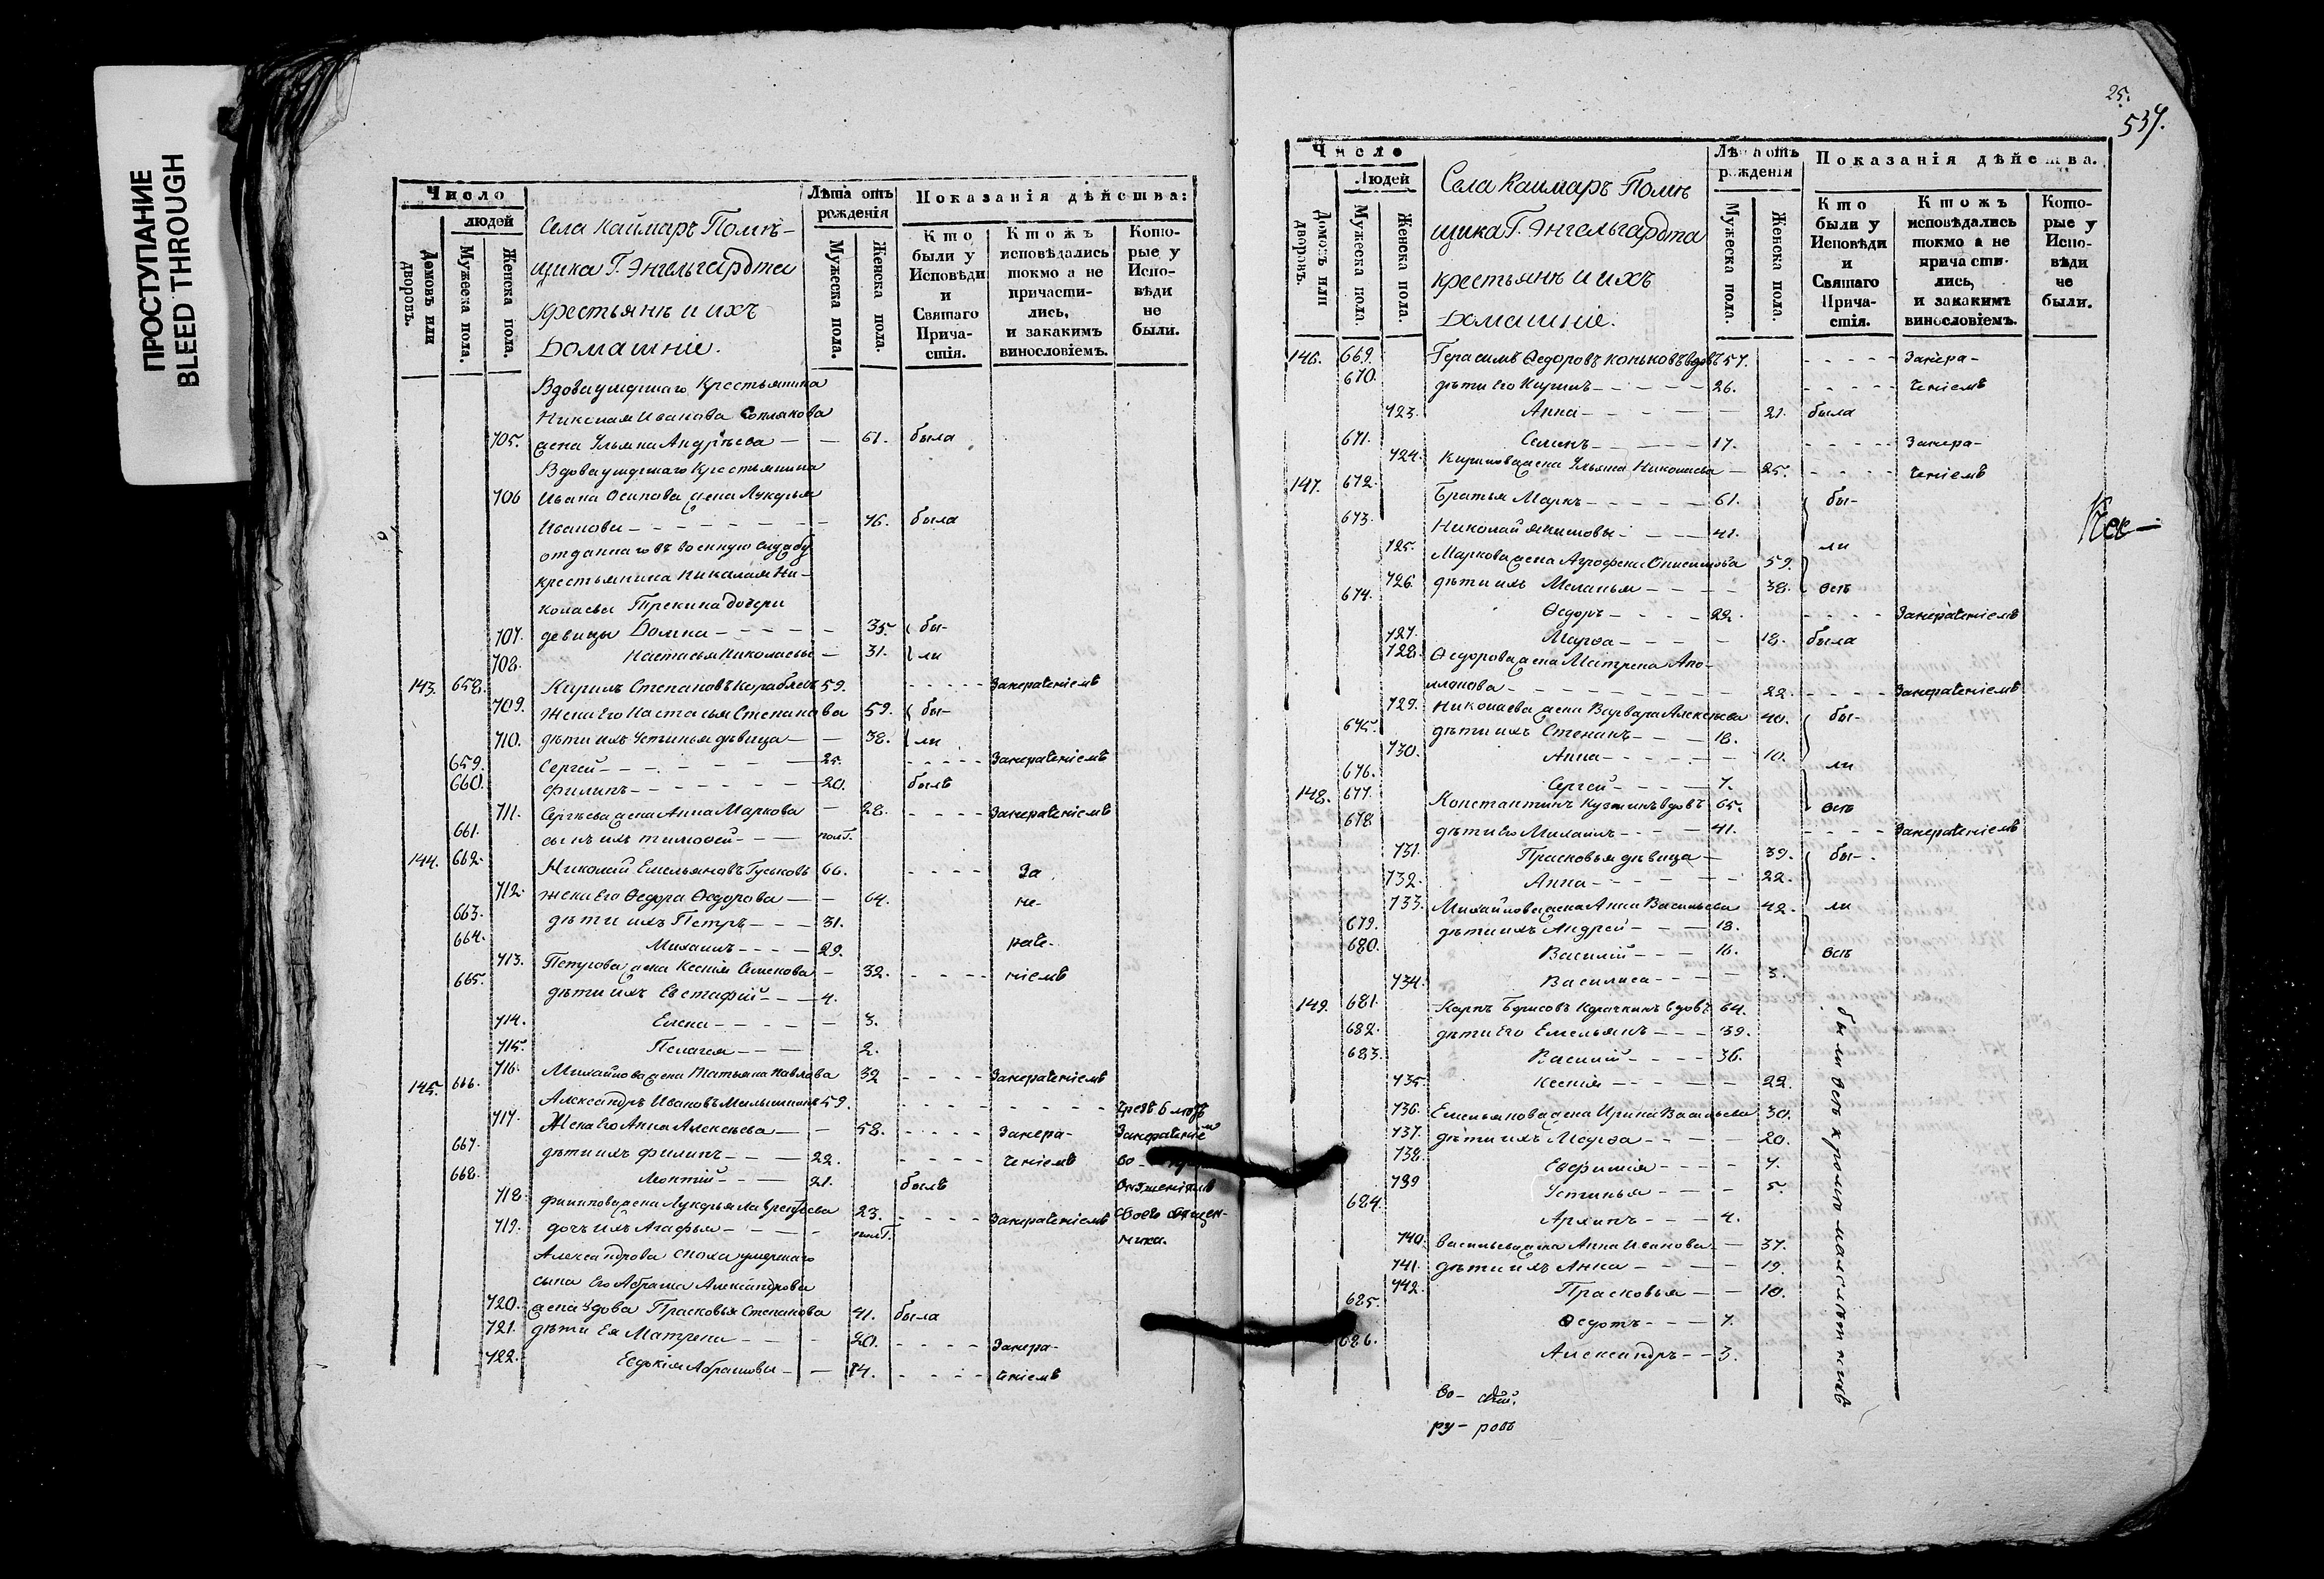 ПРОСТУПАНИЕ
BLEED THROUGH
Число
людей
Домовъ или дворовъ.
Мужеска пола.
Женска пола.
Села Каймаръ Помѣ-
щика Г. Энгельгардта
крестьянѣ и ихъ
Домашніе.
Лѣта отъ рожденія
Мужеска пола.
Женска пола.
Показанія дѣйства:
Кто были у Исповѣди и Святаго Причастія.
Ктожъ исповѣдались токмо а не причастились, и закакимъ винословіемъ.
Которые у Исповѣди не были.
Вдова умершаго Крестьянина
Иванова
705. жена Ульяна Андрѣева — — 61. была
Вдова умершаго Крестьянина
706 Ивана Осипова жена Лукерья
Иванова — — 76. была
отданнаго въ военную службу
крестьянина Николая Ни-
колаева дочери
707. девицы Домна — — 35. бы-
708. Настасья Николаевы — 31. ли
143. 658. Кирилъ Степановъ Кораблевъ 59. - - - - Занераченіемъ
709. Жена Его Настасья Степанова 59. бы-
710. дѣти ихъ Устинья дѣвица — — 38. ли
659. Сергей — — 25. - - - - Занераченіемъ
660. Филипъ — — 20. былъ
711. Сергѣева жена Анна Маркова — 28. - - - - Занераченіемъ
661. сынъ ихъ Тимофей — — полг.
144. 662. Николай Емельяновъ Гуськовъ 66. - - - - За
712. жена Его Федора Ѳедорова — — 64. не-
663. дѣти ихъ Петръ — — 31.
664. Михаилъ — — 29. раче-
713. Петрова жена Ксенія Семенова — 32. - - - - ніемъ
665. дѣти ихъ Евстафій — — 4.
714. Елена — — 3.
715. Пелагея — — 2.
716. Михайлова жена Татьяна Павлова 32 - - - - Занераченіемъ
145. 666. Александръ Ивановъ 59. - - - -
717. Жена Его Анна Алексѣева — — 58. - - - - Занера- Занераченіемъ
667. дѣти ихъ Филипъ — — 22. - - - - ченіемъ во-
668. Леонтій — — 21. былъ
718. Филипова жена Лукерья Лаврентьева 23. - - - - Занераченіемъ своего священ-
719. дочь ихъ Агафья — — полг. ника.
Александрова сноха умершаго
сына Его Абрама Александрова
720. жена вдова Прасковья Степанова 41. была
721. дѣти Ея Матрена — — 20. - - - - Занера-
722. Евдокія Абрамовы — — 14. - - - - ченіемъ
25.
537.
Число
Людей
Домовъ или дворовъ.
Мужеска пола.
Женска пола.
Села Каимаръ Помѣ
щика Г. Энгельгардта
крестьянѣ и ихъ
Домашніе.
Лѣта отъ рожденія
Мужеска пола.
Женска пола.
Показанія дѣйства.
Кто были у Исповѣди и Святаго Причастія.
Ктожъ исповѣдались токмо а не причастились, и закакимъ винословіемъ.
Которые у Исповѣди не были.
146. 669. Герасимъ Ѳедоровъ Коньковъ вдовъ 57. - - - - Занера-
670. дѣти Его Кирилъ — — 26. - - - - ченіемъ
723. Анна — — 21. была
671. Семенъ — — 17. - - - - Занера-
724. Кирилова жена Ульяна Николаева — 25. - - - - ченіемъ
147. 672. Братья Маркъ — — 61. бы-
673. Николай — — 41.
725. Маркова жена Агрофена Онисимова 59. ли
726. дѣти ихъ Меланья — — 38. всѣ
674. Ѳедоръ — — 22. - - - - Занераченіемъ
727. Марѳа — — 18. была
728. Ѳедорова жена Матрена Апо-
лонова — — 22. - - - - Занераченіемъ
729. Николаева жена Варвара Алексѣева 40. бы-
675. дѣти ихъ Степанъ — — 18.
730. Анна — — 10. ли
676. Сергей — — 7.
148. 677. Константинъ Кузминъ вдовъ 65. всѣ
678 дѣти Его Михаилъ — — 41. - - - - Занераченіемъ
731. Прасковья дѣвица — 39. бы-
732. Анна — — 22.
733. Михайлова жена Анна Васильева 42. ли
679. дѣти ихъ Андрей — — 18.
680. Василій — — 16. всѣ
734. Василиса — — 3.
149. 681. Карпъ Борисовъ вдовъ 64.
682. дѣти Его Емельянъ — — 39.
683. Василій — — 36.
735. Ксенія — — 22.
736. Емельянова жена Ирина Васильева 30.
737. дѣти ихъ Марѳа — — 20.
738. Евфимія — — 7.
739 Устинья — — 5.
684. Архипъ — — 4.
740. Васильева жена Анна Иванова — 37.
741. дѣти ихъ Анна — — 19.
742. Прасковья — — 10.
685. Ѳедотъ — — 7.
686. Александръ — — 3.
были всѣ кромѣ малолѣтнихъ